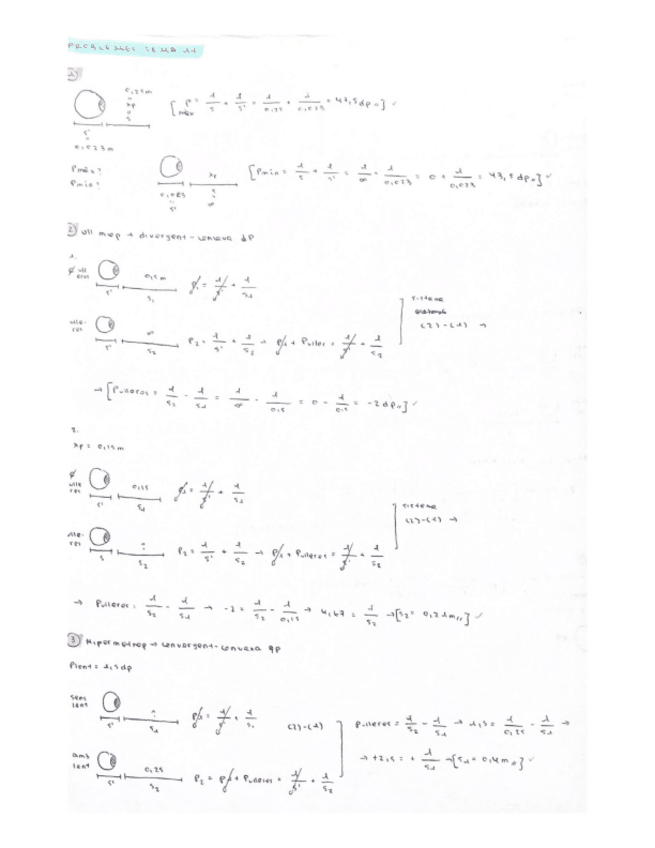 PROBLEMES SEMANA 11
1)
0,25m
xp
s
s'
0,023m
[Pmàx = 1/s + 1/s' = 1/0,25 + 1/0,023 = 47,5dp//] ✓
Pmàx?
Pmin?
xp
0,023
s'
s
∞
[Pmin = 1/s + 1/s' = 1/∞ + 1/0,023 = 0 + 1/0,023 = 43,5dp//] ✓
2) ull miop → divergent-concava dp
1.
ulleres
0,5m
s'
s1
P1 = 1/s' + 1/s1
ulleres
∞
s'
s2
P2 = 1/s' + 1/s2 → P1 + Pulleres = 1/s' + 1/s2
sistema
(2)-(1) →
→ [Pulleres = 1/s2 - 1/s1 = 1/∞ - 1/0,5 = 0 - 1/0,5 = -2dp//] ✓
2.
xp = 0,15m
ulleres
0,15
s'
s1
P1 = 1/s' + 1/s1
ulleres
?
s'
s2
P2 = 1/s' + 1/s2 → P1 + Pulleres = 1/s' + 1/s2
sistema
(2)-(1) →
→ Pulleres = 1/s2 - 1/s1 → -2 = 1/s2 - 1/0,15 → 4,67 = 1/s2 → [s2 = 0,21m//] ✓
3) Hipermetrop → convergent-convexa dp
Plent = 1,5dp
sens lent
?
s'
s1
P1 = 1/s' + 1/s1
(2)-(1)
Pulleres = 1/s2 - 1/s1 → 1,5 = 1/0,25 - 1/s1 →
→ +2,5 = + 1/s1 → [s1 = 0,4m//] ✓
amb lent
0,25
s'
s2
P2 = P1 + Pulleres = 1/s' + 1/s2